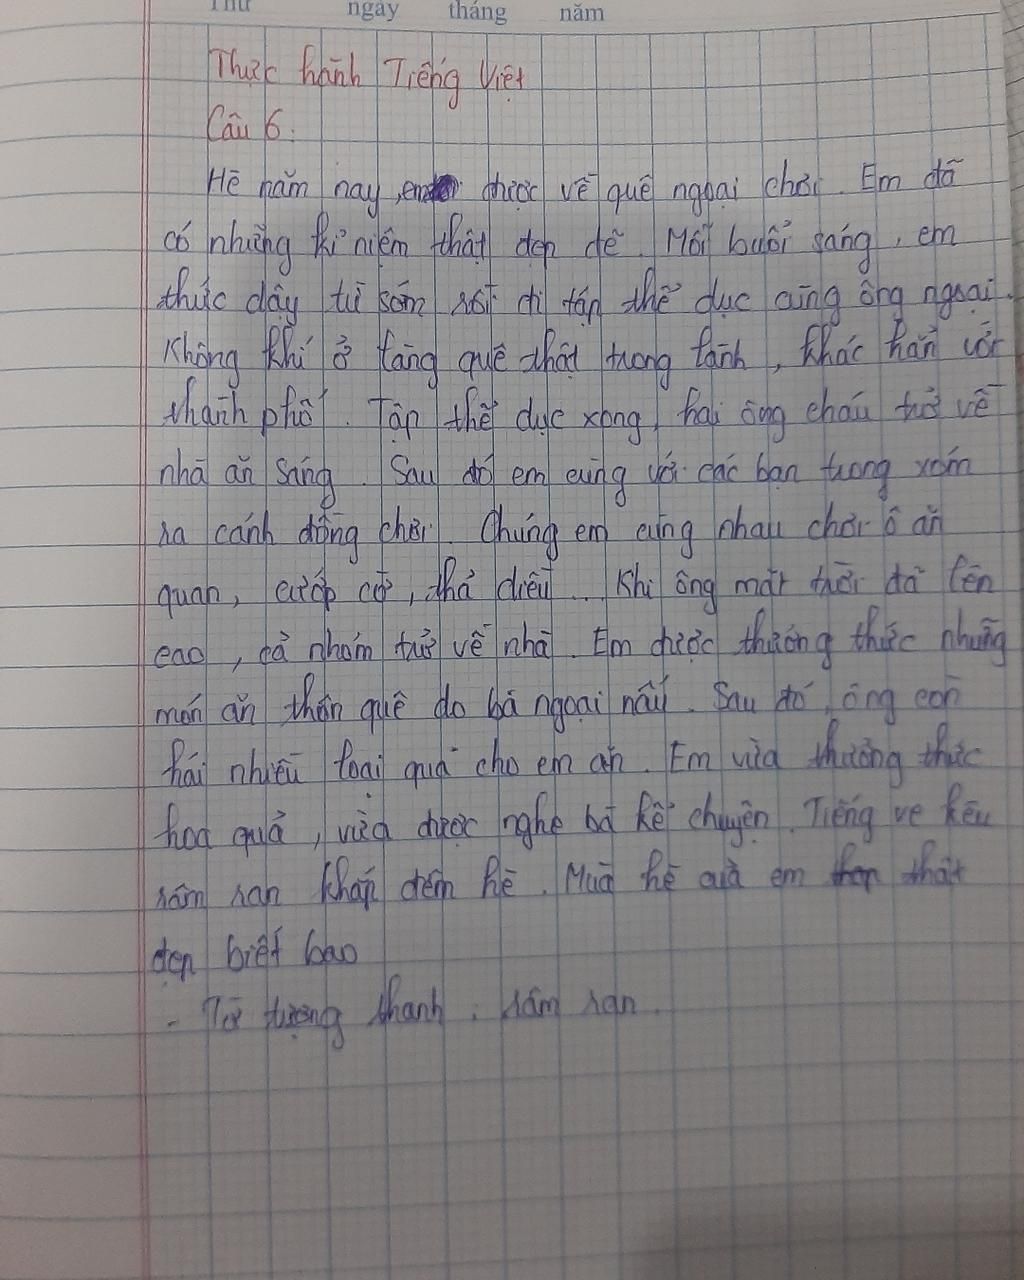 Thứ ngày tháng năm
Thực hành Tiếng Việt
Câu 6.
Hè năm nay, em được về quê ngoại chơi. Em đã
có những kỉ niệm thật đẹp đẽ. Mỗi buổi sáng, em
thức dậy từ sớm rồi đi tập thể dục cùng ông ngoại.
Không khí ở làng quê thật trong lành, khác hẳn với
thành phố. Tập thể dục xong, hai ông cháu trở về
nhà ăn sáng. Sau đó em cùng với các bạn trong xóm
ra cánh đồng chơi. Chúng em cùng nhau chơi ô ăn
quan, cướp cờ, thả diều... Khi ông mặt trời đã lên
cao, cả nhóm trở về nhà. Em được thưởng thức những
món ăn thôn quê do bà ngoại nấu. Sau đó, ông còn
hái nhiều loại quả cho em ăn. Em vừa thưởng thức
hoa quả, vừa được nghe bà kể chuyện. Tiếng ve kêu
râm ran khắp đêm hè. Mùa hè của em thật
đẹp biết bao
- Từ tượng thanh: râm ran.